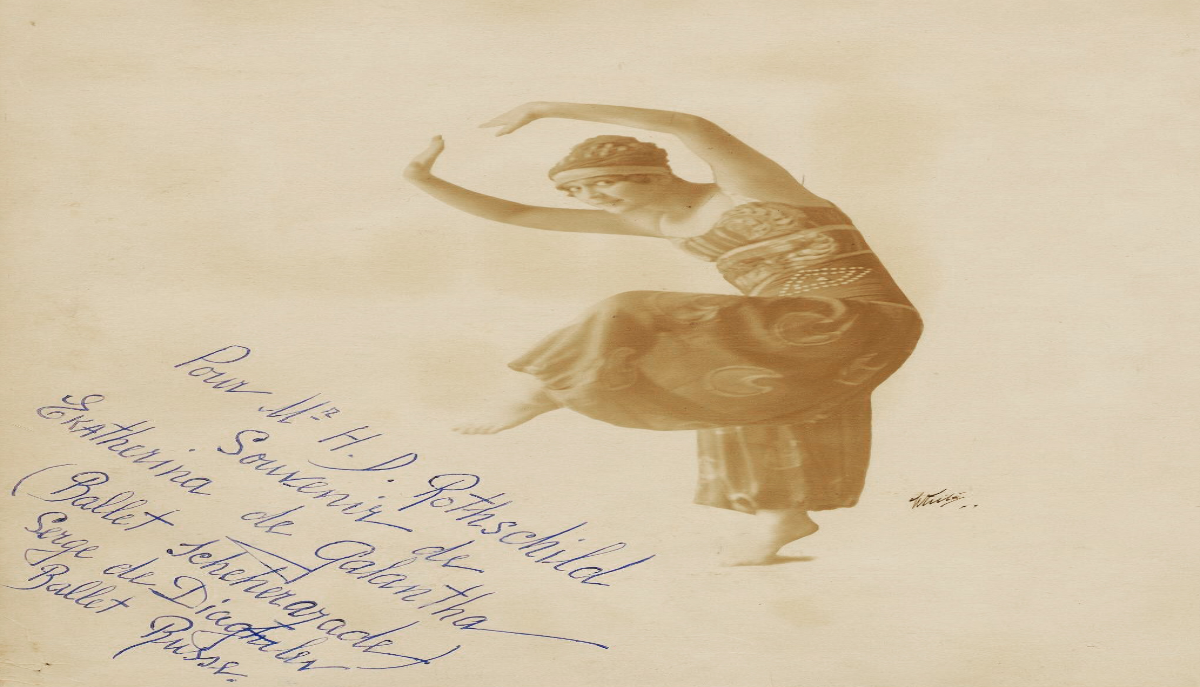 Pour Mr H. D. Rothschild
Souvenir de
Ekatherina de Galantha
(Ballet Scheherazade)
Serge de Diaghilev
Ballet Russe.
White